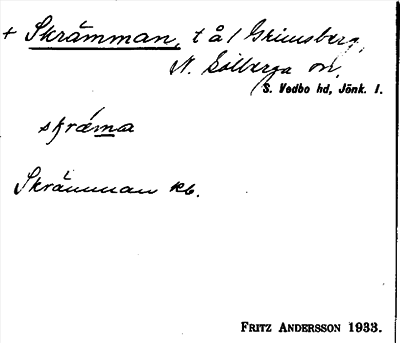 + Skrämman, t å 1 Grimsberg,
N. Solberga sn.
S. Vedbo hd, Jönk. l.
skráma
Skrämman kb.
FRITZ ANDERSSON 1933.